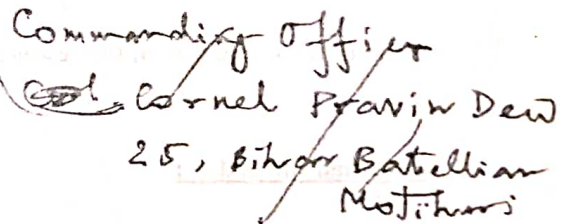 Commanding Officer
Col. Cornel Pravin Dew
25, Bihar Batellian
Motihari